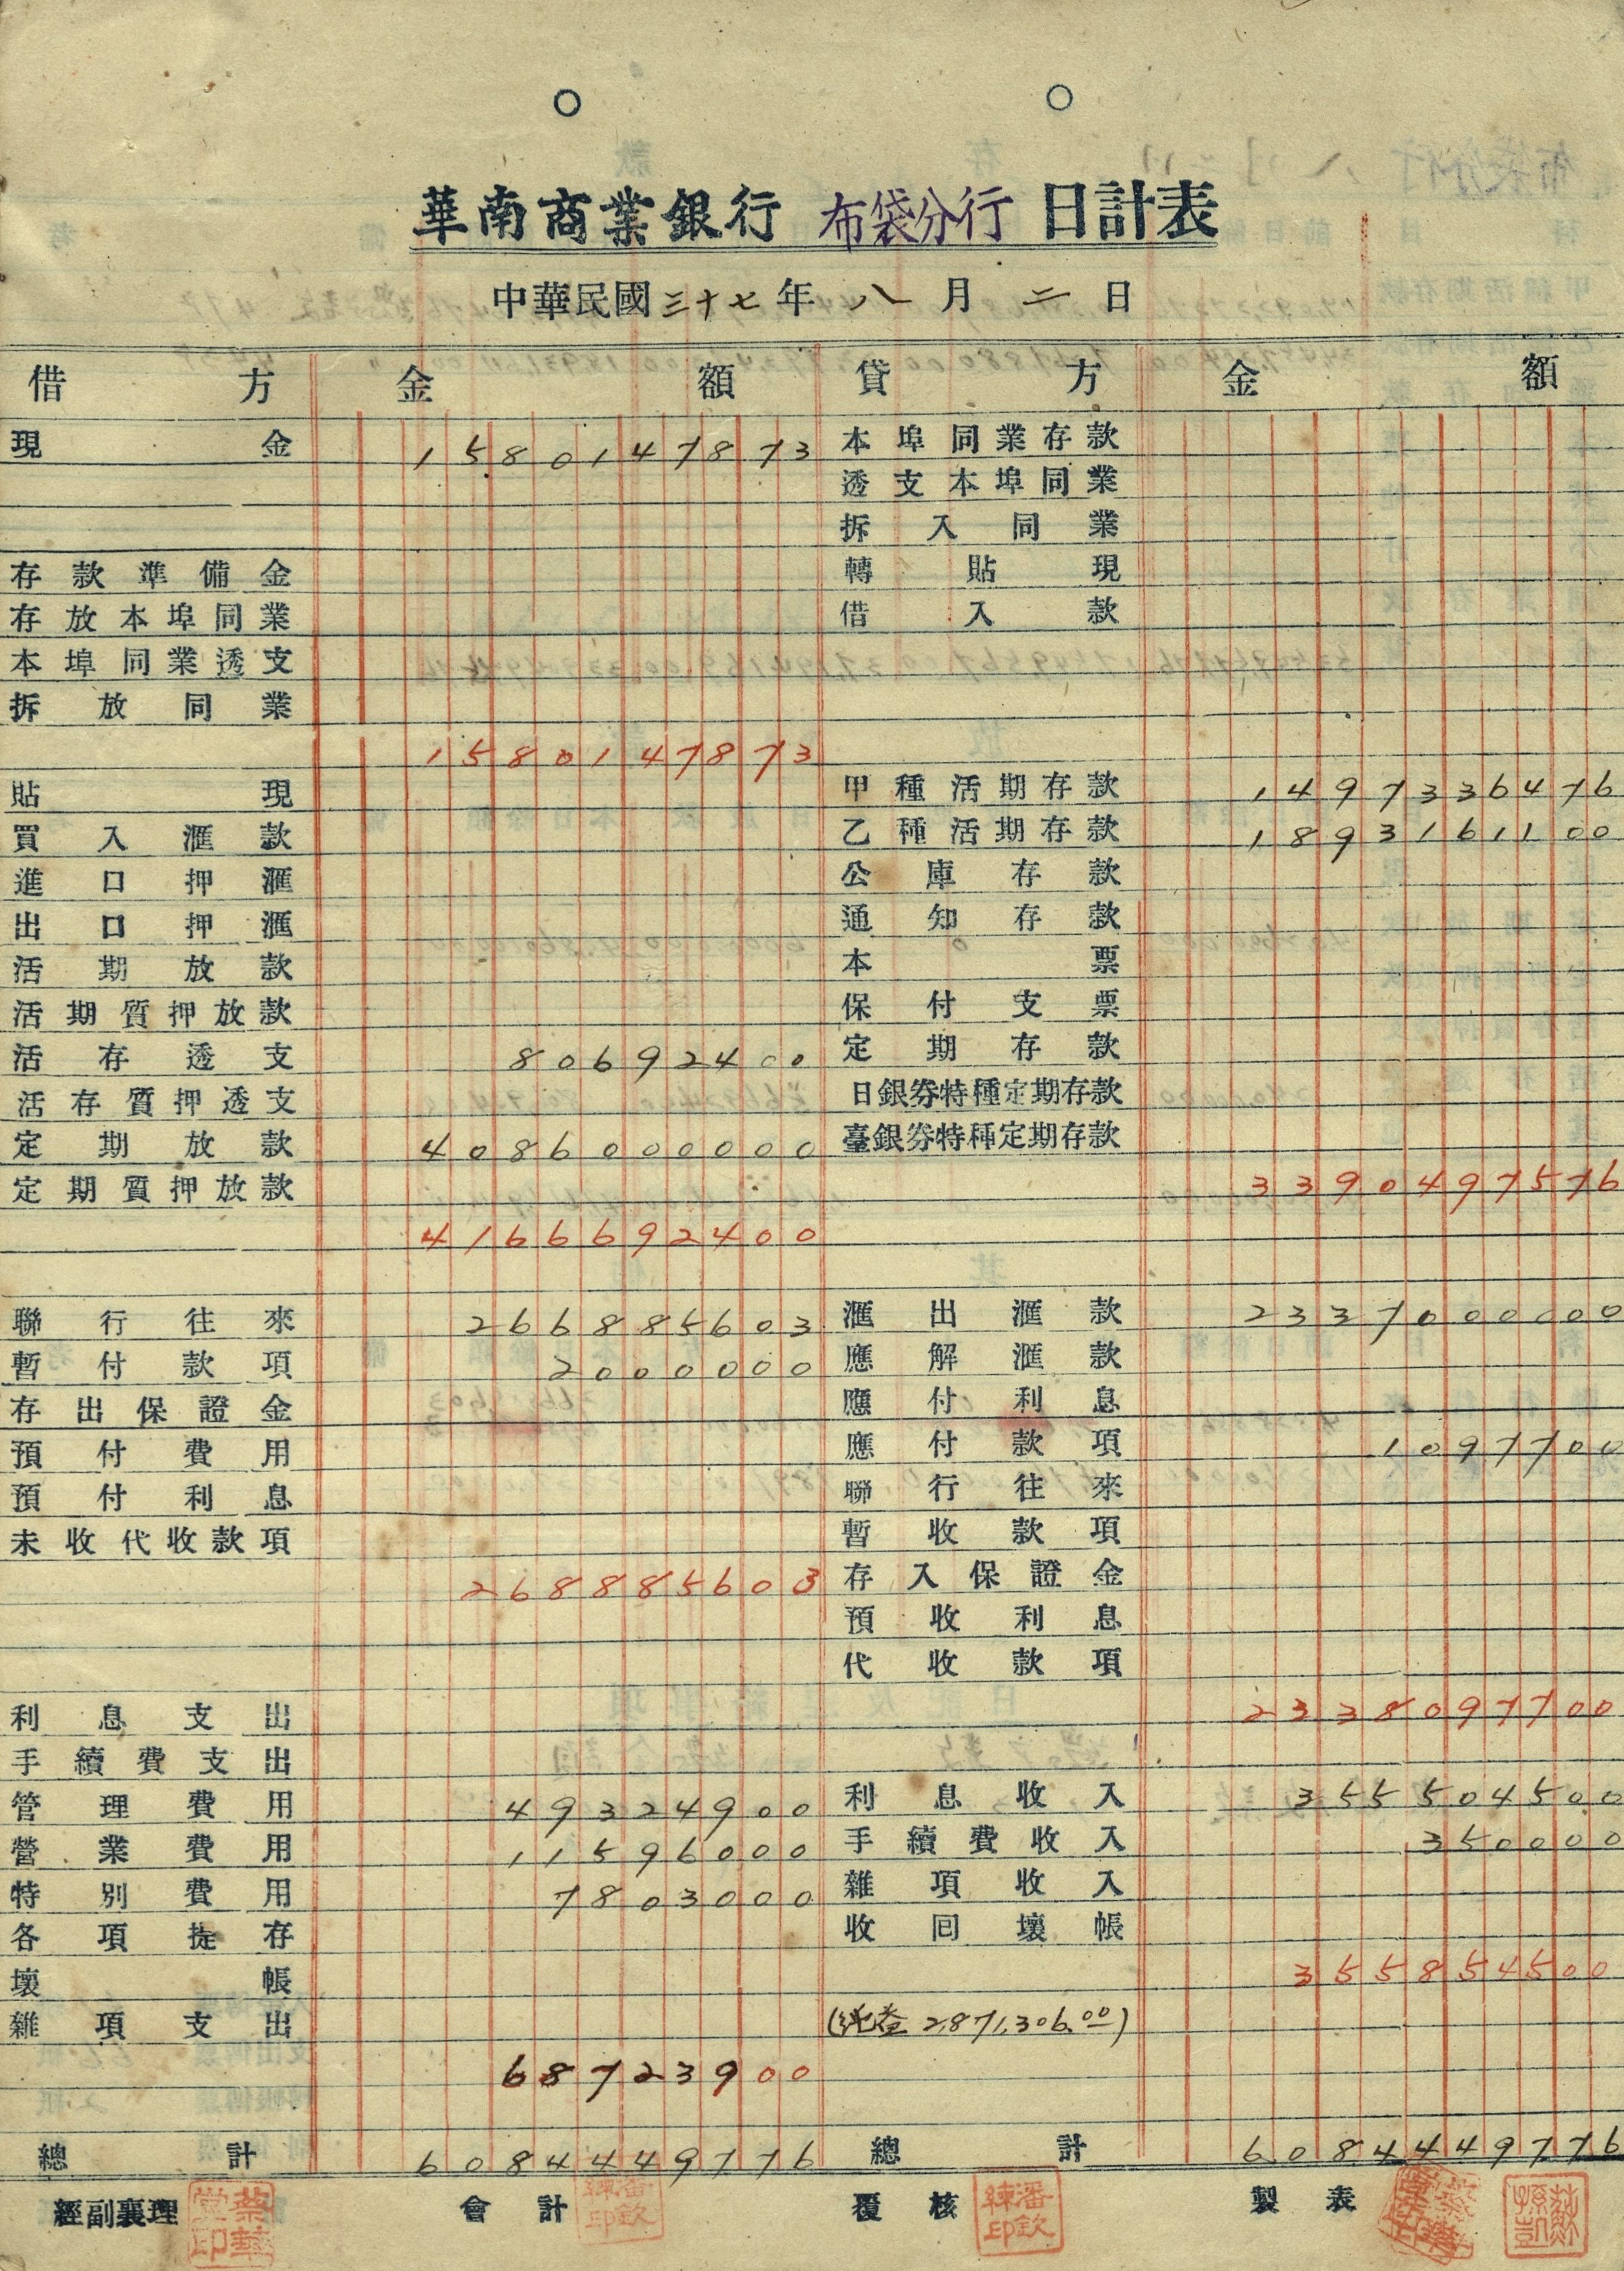 華南商業銀行 布袋分行 日計表
中華民國三十七年 八 月 二 日
借方 金額 貸方 金額
現金 1580147873
存款準備金
存放本埠同業
本埠同業透支
拆放同業
1580147873
貼現
買入滙款
進口押滙
出口押滙
活期放款
活期質押放款
活存透支 80692400
活存質押透支
定期放款 4086000000
定期質押放款
4166692400
聯行往來 266885603
暫付款項 2000000
存出保證金
預付費用
預付利息
未收代收款項
268885603
利息支出
手續費支出
管理費用 49324900
營業費用 11596000
特別費用 7803000
各項提存
壞帳
雜項支出
68723900
總計 6084449776
本埠同業存款
透支本埠同業
拆入同業
轉貼現
借入款
甲種活期存款 1497336476
乙種活期存款 1893161100
公庫存款
通知存款
本票
保付支票
定期存款
日銀券特種定期存款
臺銀券特種定期存款
3390497576
滙出滙款 2337000000
應解滙款
應付利息
應付款項 1097700
聯行往來
暫收款項
存入保證金
預收利息
代收款項
2338097700
利息收入 355504500
手續費收入 350000
雜項收入
收回壞帳
355854500
(純益 2,871,306.00)
總計 6084449776
經副襄理 會計 覆核 製表
潘欽練印
潘欽練印